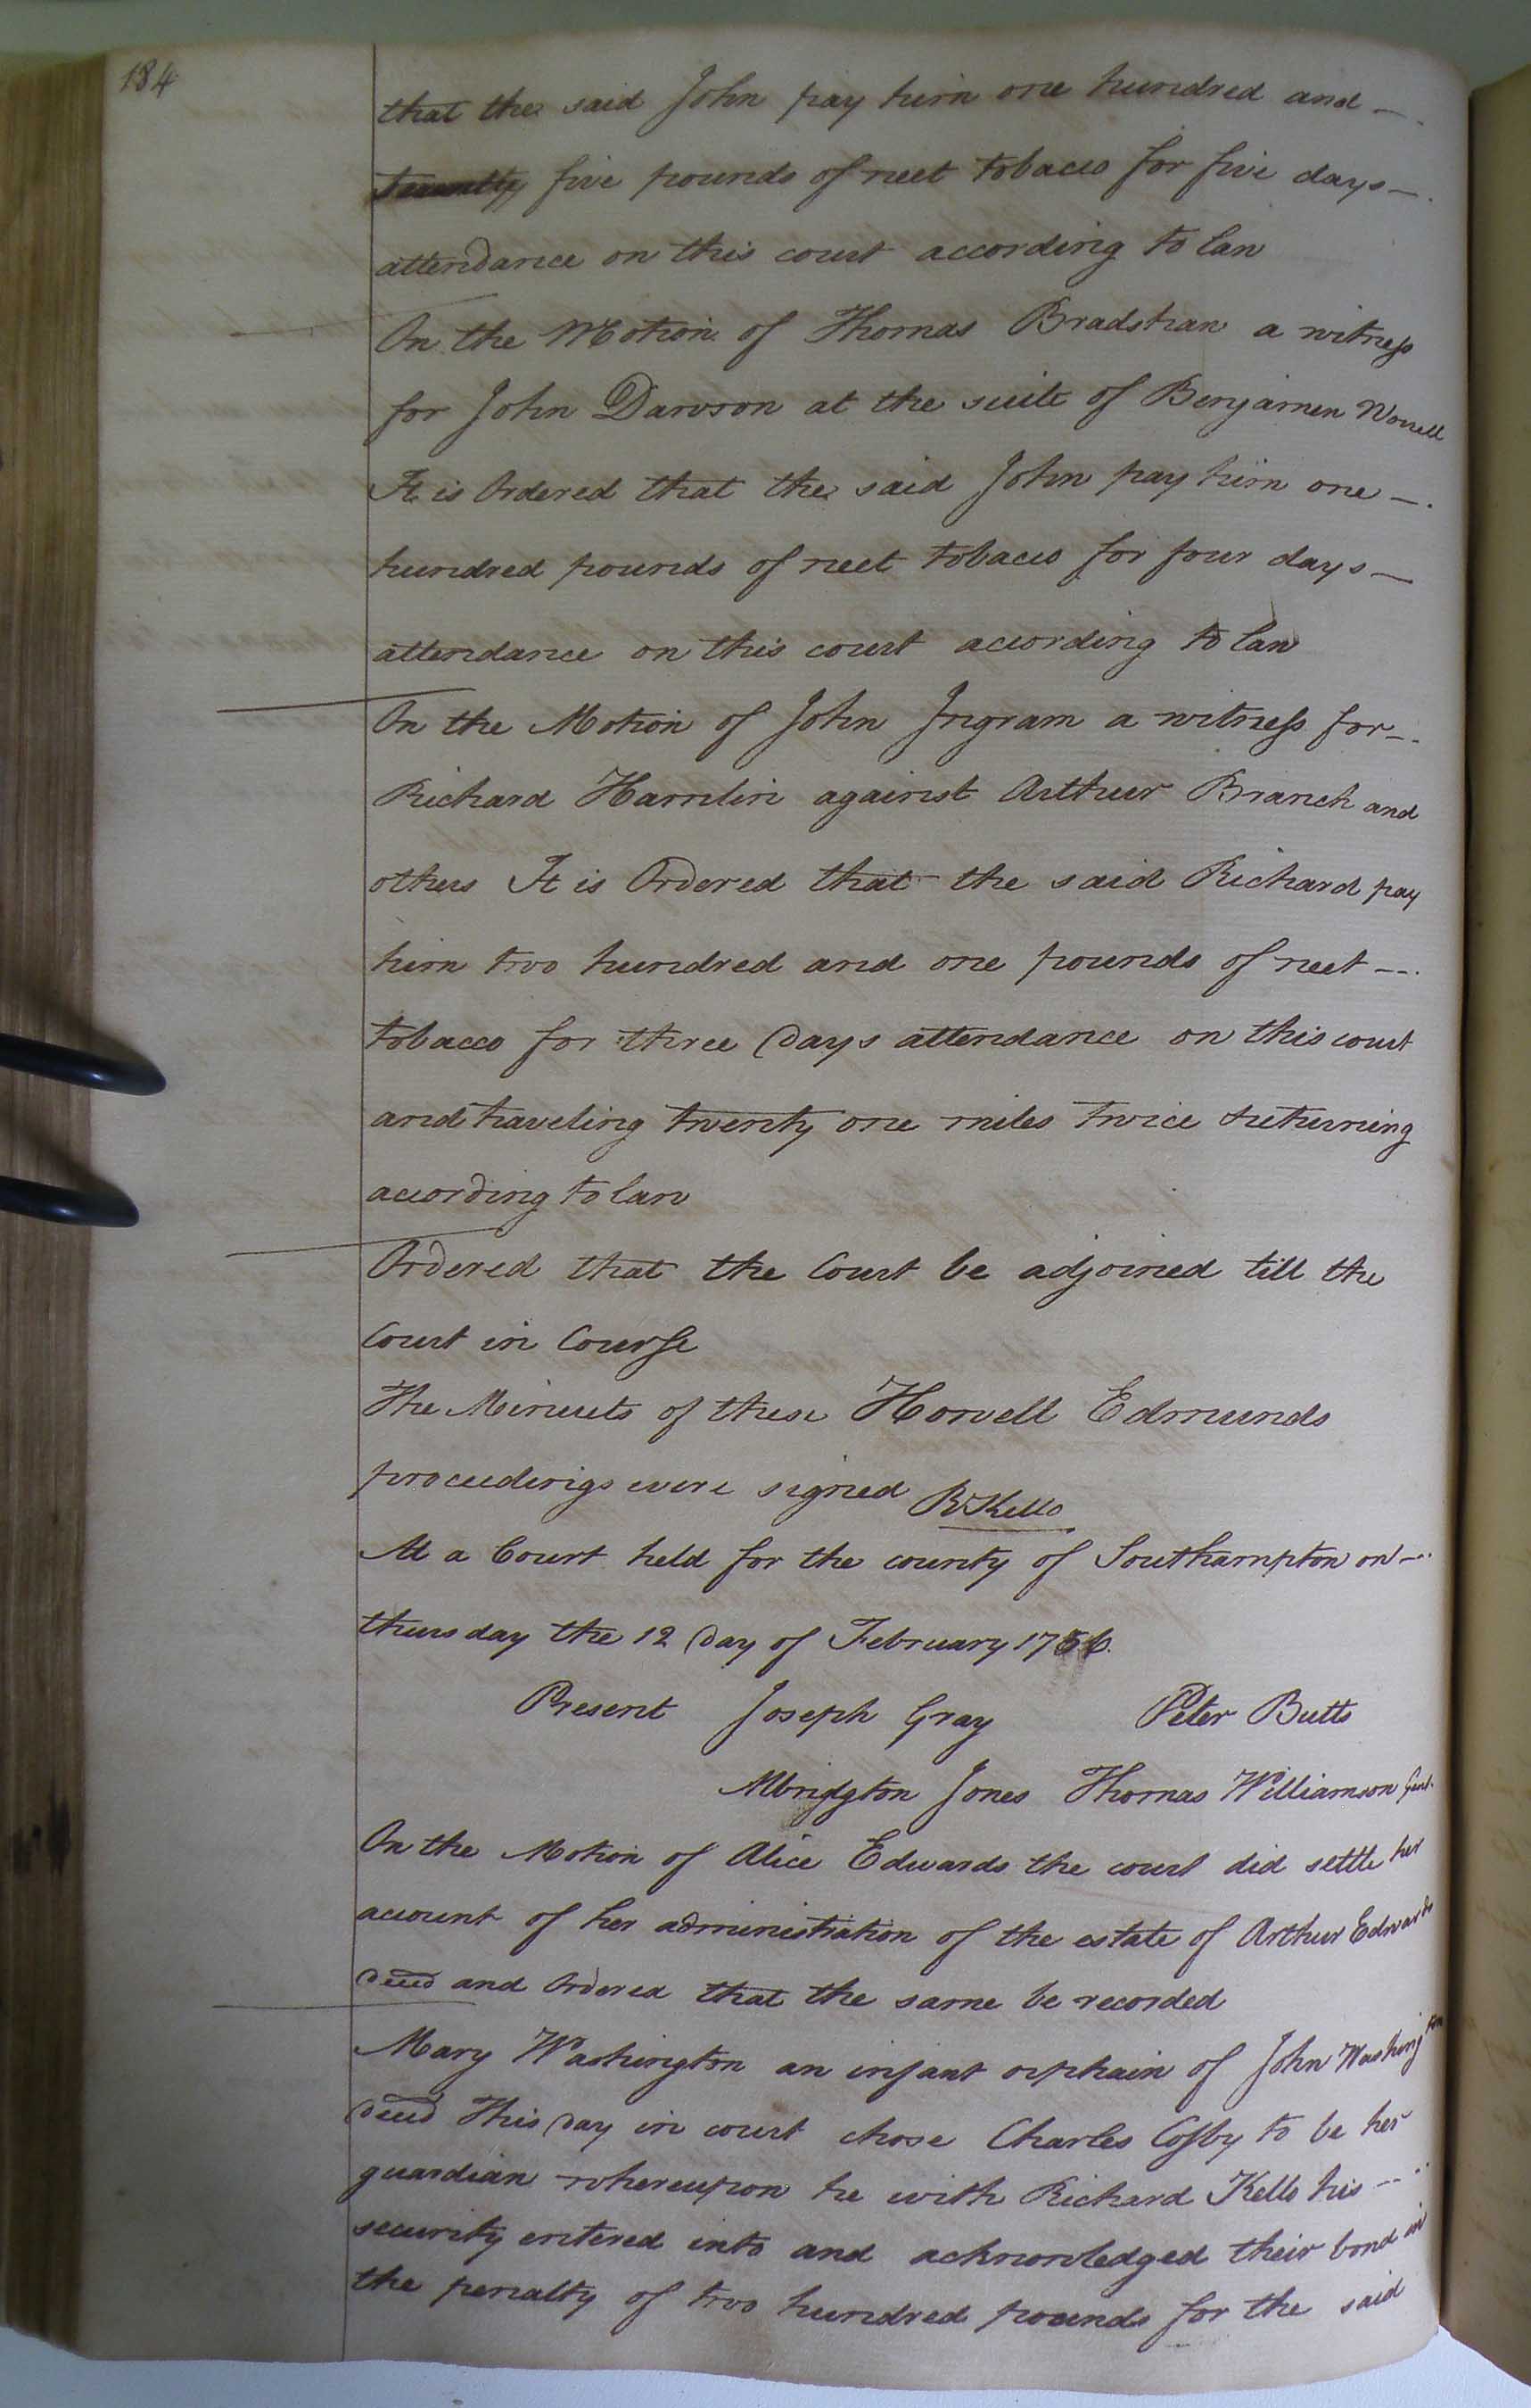 184
that the said John pay him one hundred and
twenty five pounds of neet tobacco for five days
attendance on this court according to law
On the Motion of Thomas Bradshaw a witness
for John Dawson at the suite of Benjamen Worrell
It is Ordered that the said John pay him one
hundred pounds of neet tobacco for four days
attendance on this court according to law
On the Motion of John Ingram a witness for
Richard Hamlin against Arthur Branch and
others It is Ordered that the said Richard pay
him two hundred and one pounds of neet
tobacco for three days attendance on this court
and traveling twenty one miles twice & returning
according to law
Ordered that the Court be adjoined till the
Court in Course
The Minuets of these Howell Edmunds
proceedings were signed R Kello
At a Court held for the county of Southampton on
thursday the 12 day of February 1756.
Present Joseph Gray Peter Butts
Albridgton Jones Thomas Williamson Gent.
On the Motion of Alice Edwards the court did settle her
account of her administration of the estate of Arthur Edwards
decd and Ordered that the same be recorded
Mary Washington an infant orphain of John Washington
decd This day in court chose Charles Cosby to be her
guardian whereupon he with Richard Kello his
security entered into and acknowledged their bond in
the penalty of two hundred pounds for the said